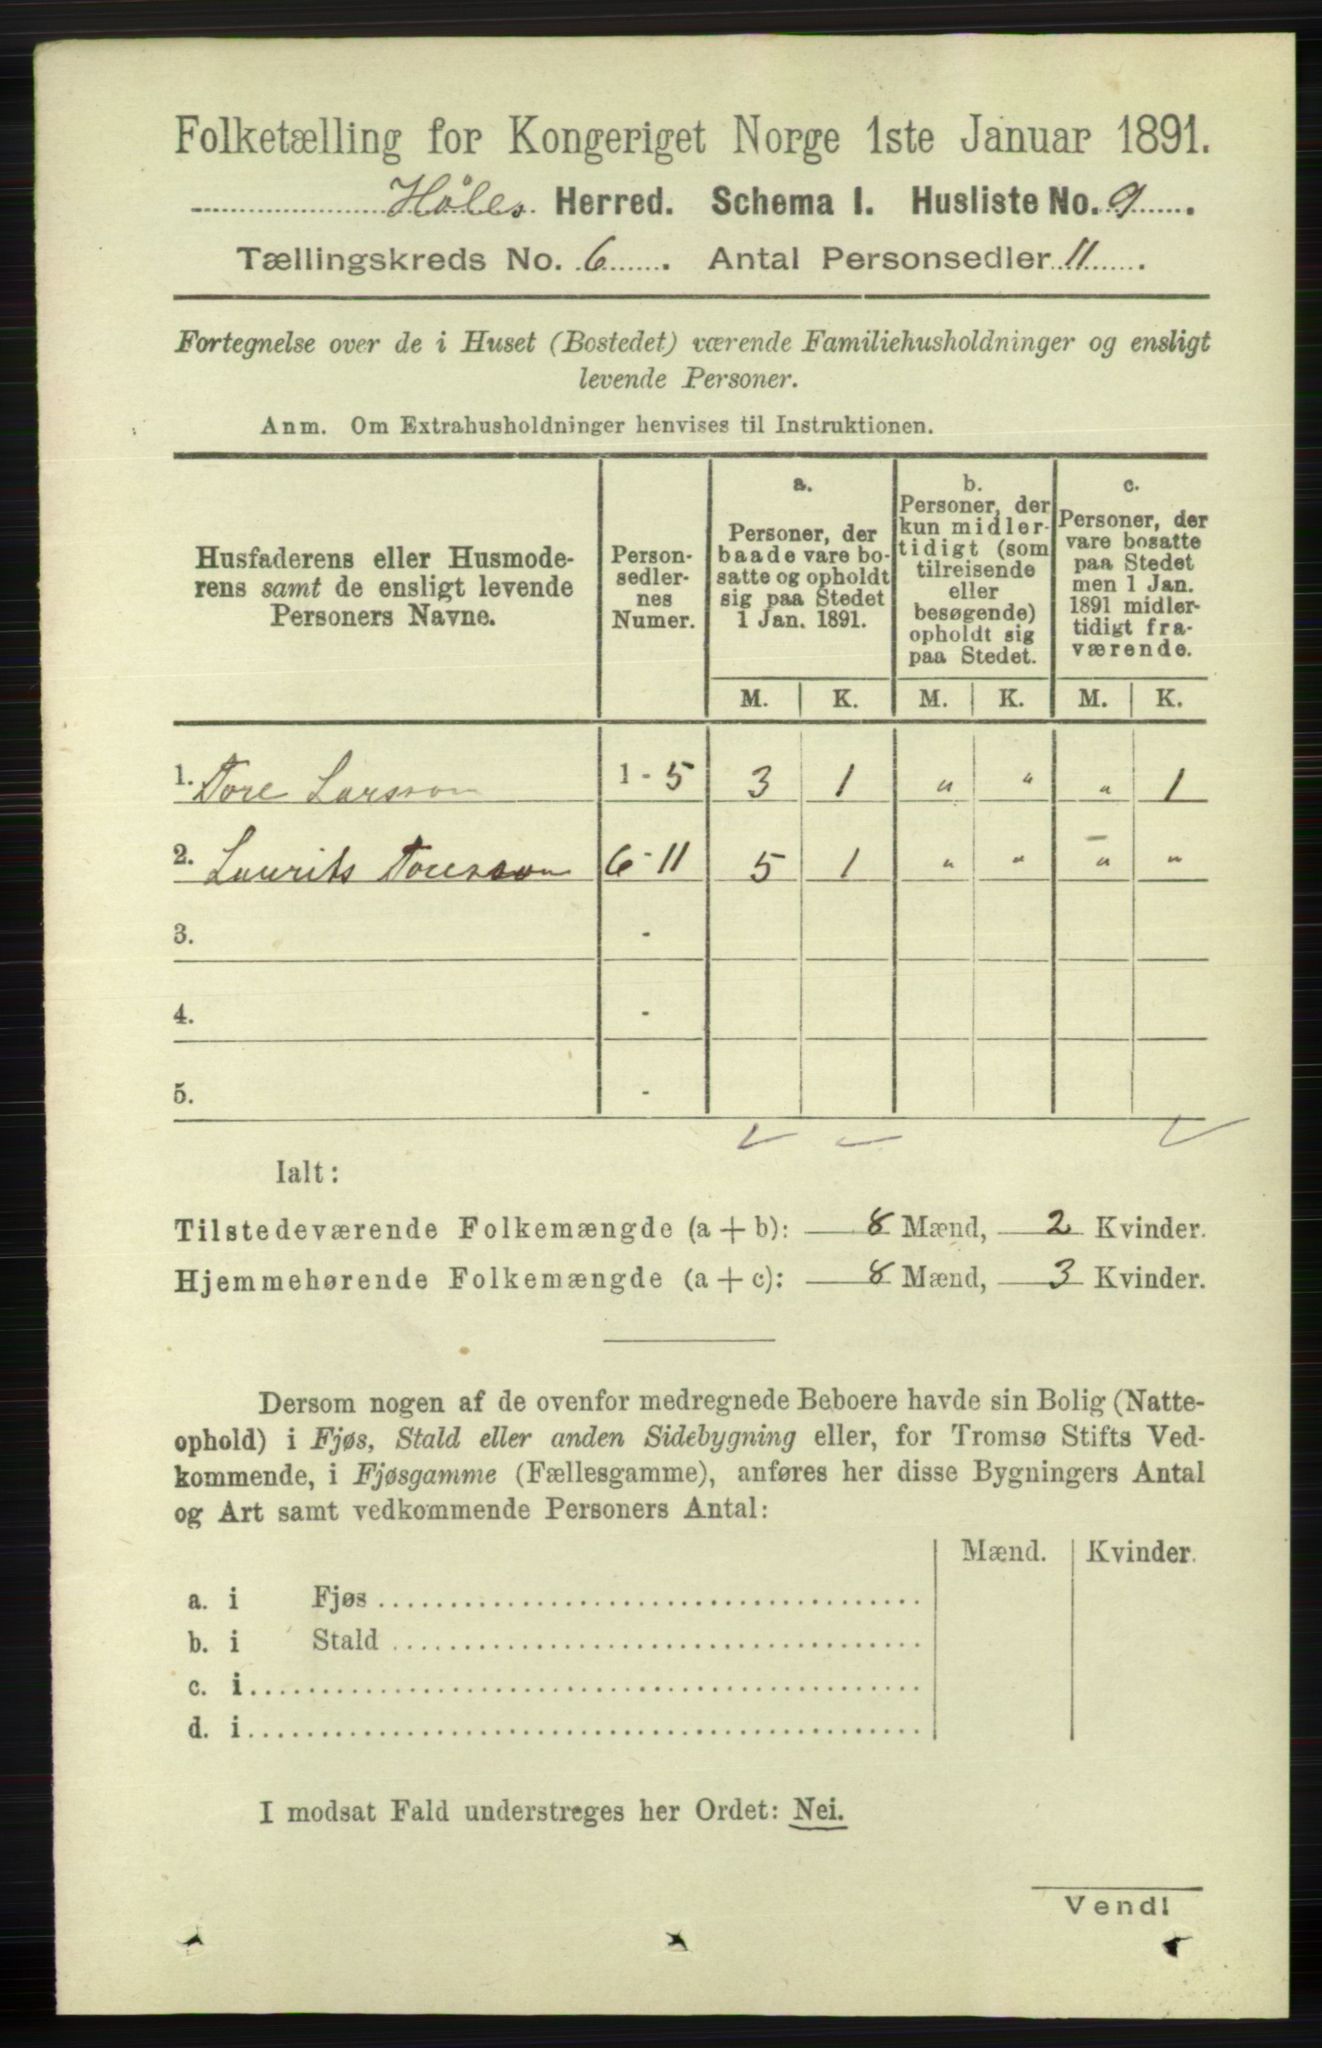 Folketælling for Kongeriget Norge 1ste Januar 1891.
Høles Herred. Schema I. Husliste No. 9.
Tællingskreds No. 6. Antal Personsedler 11.
Fortegnelse over de i Huset (Bostedet) værende Familiehusholdninger og ensligt
levende Personer.
Anm. Om Extrahusholdninger henvises til Instruktionen.
Husfaderens eller Husmode-
rens samt de ensligt levende
Personers Navne.
Person-
sedler-
nes
Numer.
a.
Personer, der
baade vare bo-
satte og opholdt
sig paa Stedet
1 Jan. 1891.
b.
Personer, der
kun midler-
tidigt (som
tilreisende
eller
besøgende)
opholdt sig
paa Stedet.
c.
Personer, der
vare bosatte
paa Stedet
men 1 Jan.
1891 midler-
tidigt fra-
værende.
M. K. M. K. M. K.
1. Tore Larsson 1 - 5 3 1 " " " 1
2. Laurits Toresson 6 - 11 5 1 " " " "
3. -
4. -
5. -
Ialt:
Tilstedeværende Folkemængde (a + b): 8 Mænd, 2 Kvinder.
Hjemmehørende Folkemængde (a + c): 8 Mænd, 3 Kvinder.
Dersom nogen af de ovenfor medregnede Beboere havde sin Bolig (Natte-
ophold) i Fjøs, Stald eller anden Sidebygning eller, for Tromsø Stifts Ved-
kommende, i Fjøsgamme (Fællesgamme), anføres her disse Bygningers Antal
og Art samt vedkommende Personers Antal:
Mænd. Kvinder.
a. i Fjøs
b. i Stald
c. i
d. i
I modsat Fald understreges her Ordet: Nei.
Vend!